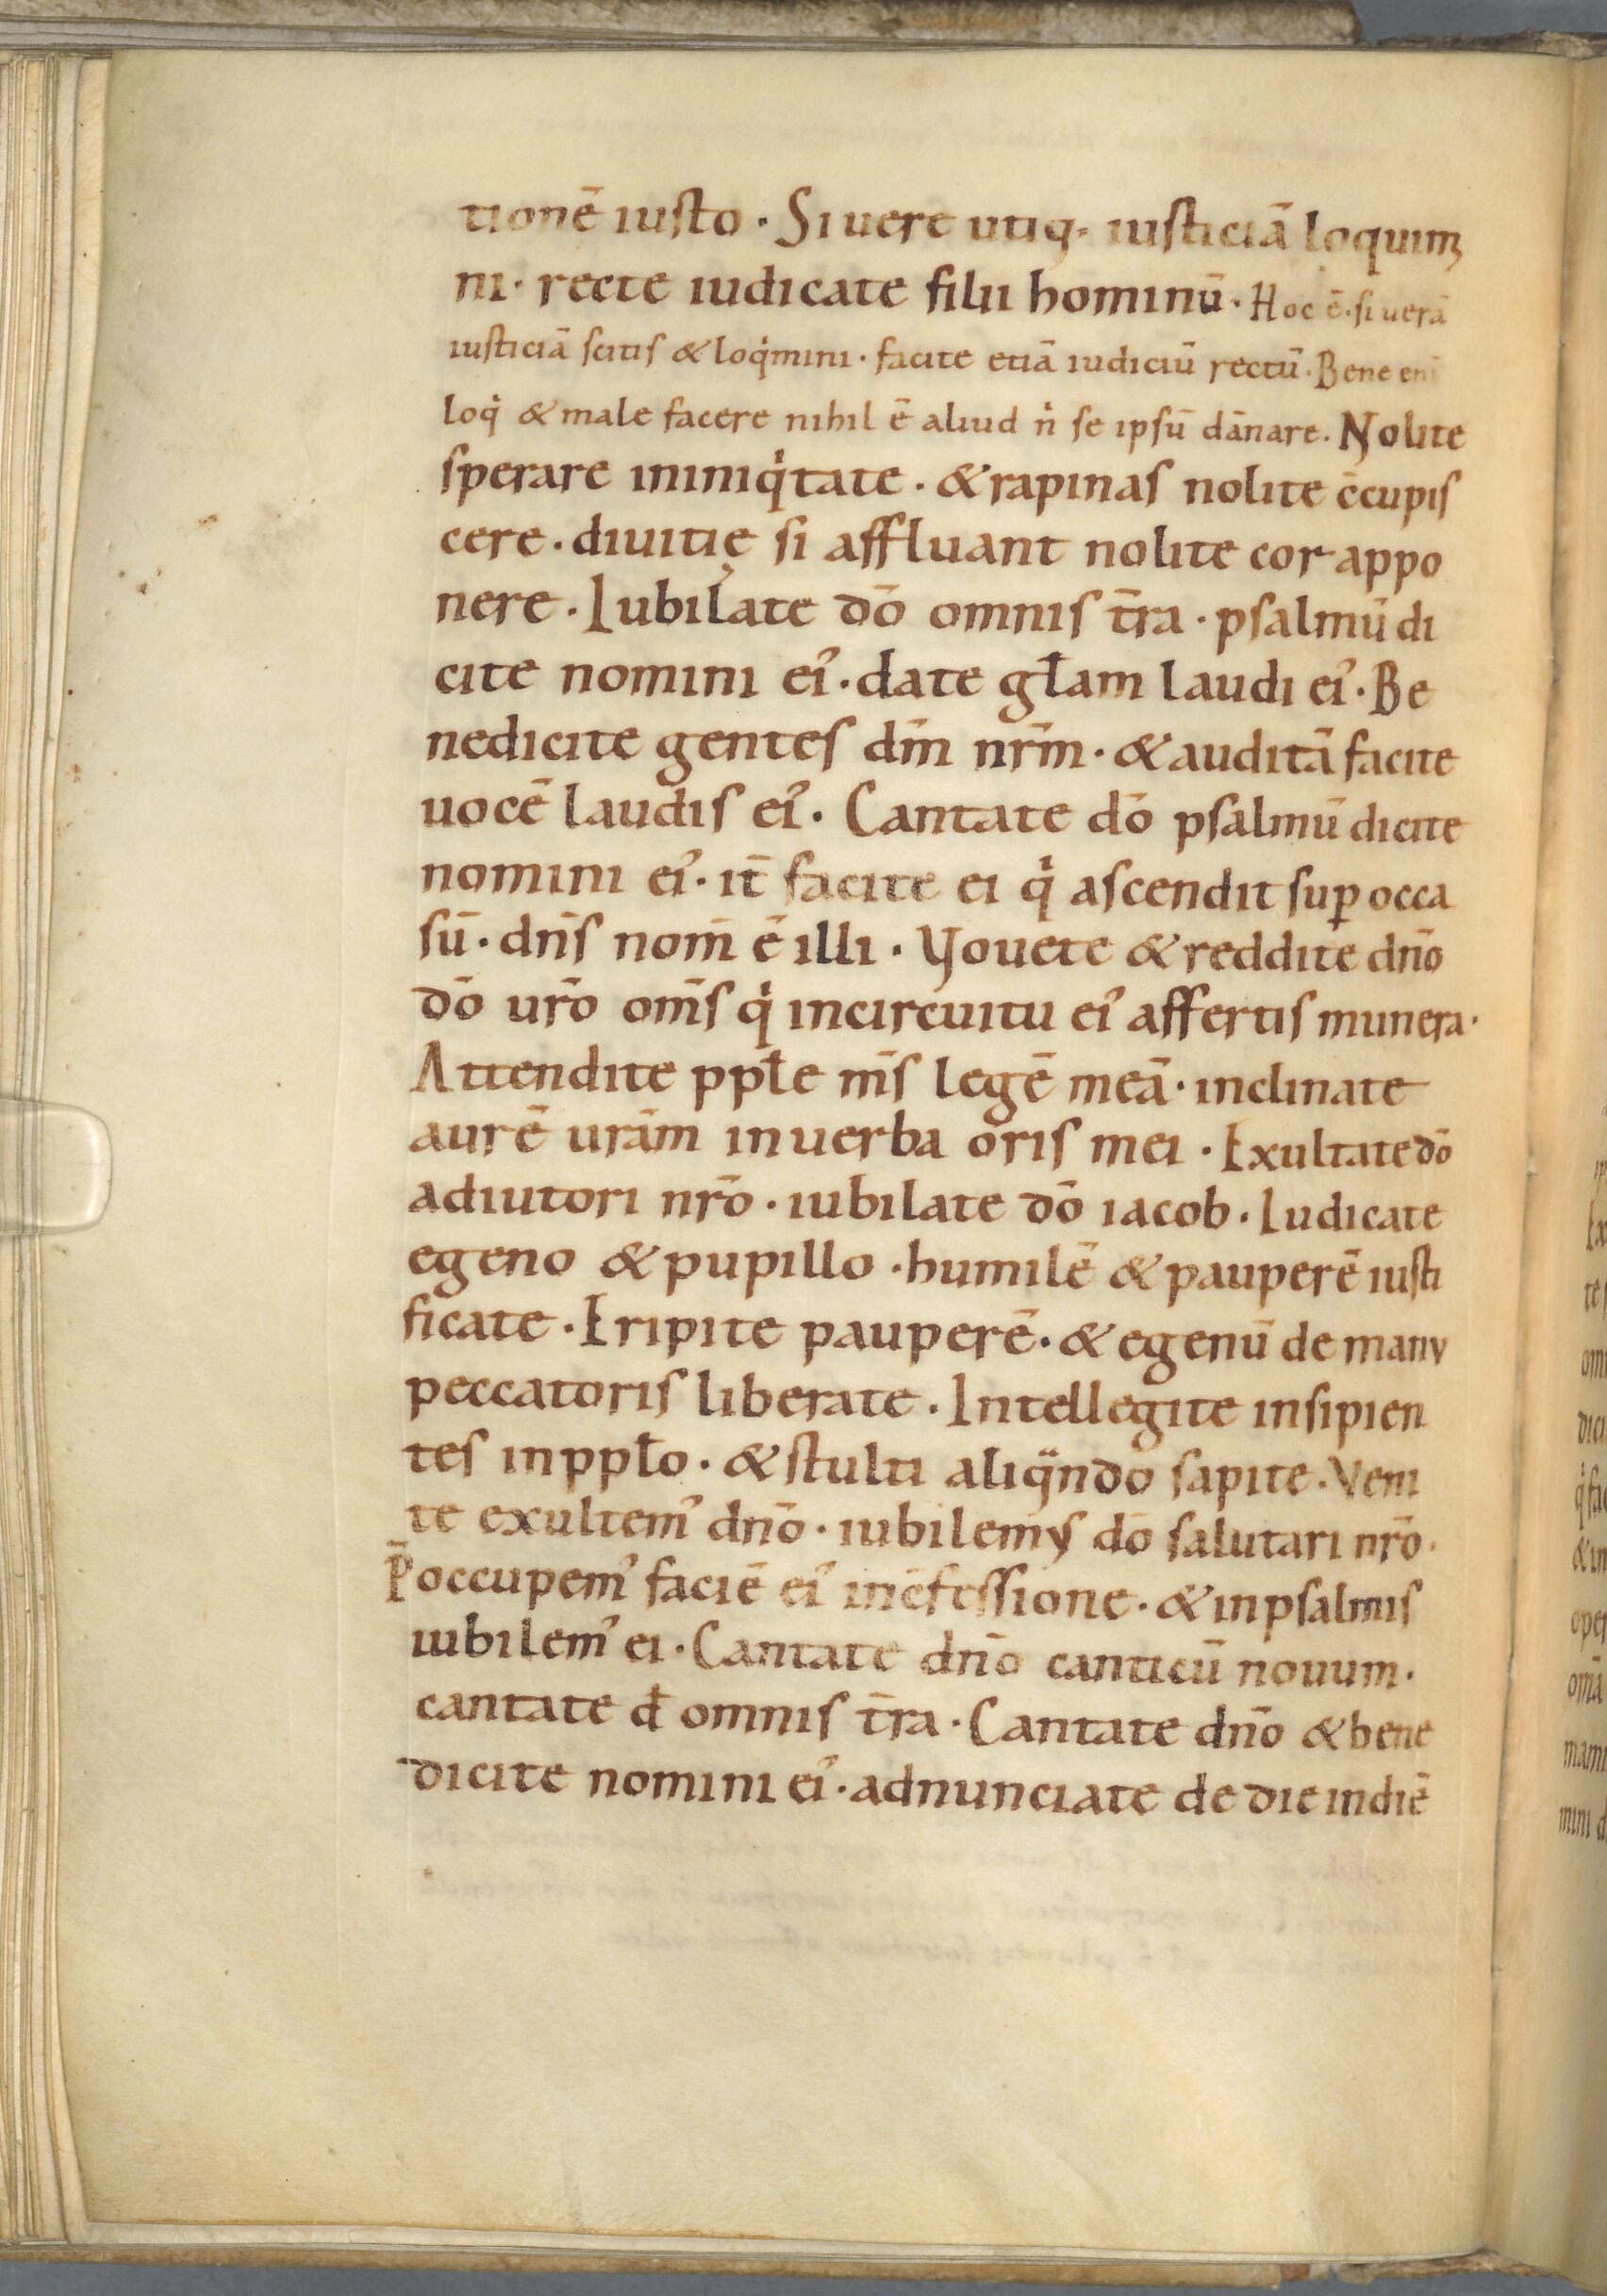 tionē iusto · Si uere utiq· iusticiā loquim
ni· recte iudicate filii hominū· Hoc ē· si uerā
iusticiā scitis & loqͥmini · facite etiā iudiciū rectū· Bene eni
loqͥ & male facere nihil ē aliud nͥ se ipsū dānare. Nolite
sperare ininiqͥtate · & rapinas nolite c̄cupis
cere · diuitię si affluant nolite cor appo
nere · Iubilate dō omnis t̄ra · psalmū di
cite nomini ei᾽ · date gl̄am laudi ei᾽ · Be
nedicite gentes dm̄ nr̄m · & auditā facite
uocē laudis ei᾽ · Cantate dō psalmū dicite
nomini ei᾽ · it̄ facite ei qͥ ascendit suꝑ occa
sū · dn̄s nom̄ ē illi · Vouete & reddite dn̄o
dō ur̄o om̄s qͥ incircuitu ei᾽ affertis munera·
Attendite ppl̄e m̄s legē meā · inclinate
aurē ur̄am in uerba oris mei · Exultate dō
adiutori nr̄o · iubilate dō iacob · Iudicate
egeno & pupillo · humilē & pauperē iusti
ficate · Eripite pauperē · & egenū de manu
peccatoris liberate · Intellegite insipien
tes in ppl̄o · & stulti aliqᷓndo sapite · Veni
te exultem᾽ dn̄o · iubilemus dō salutari nr̄o·
P̄occupem᾽ faciē ei᾽ inc̄fessione · & in psalmis
iubilem᾽ ei · Cantate dn̄o canticū nouum ·
cantate đ omnis t̄ra · Cantate dn̄o & bene
dicite nomini ei᾽ · adnunciate de die indiē
ip
Ex
tes
om
dici
qͥ fac
& in
oper
omā
mani
mini d